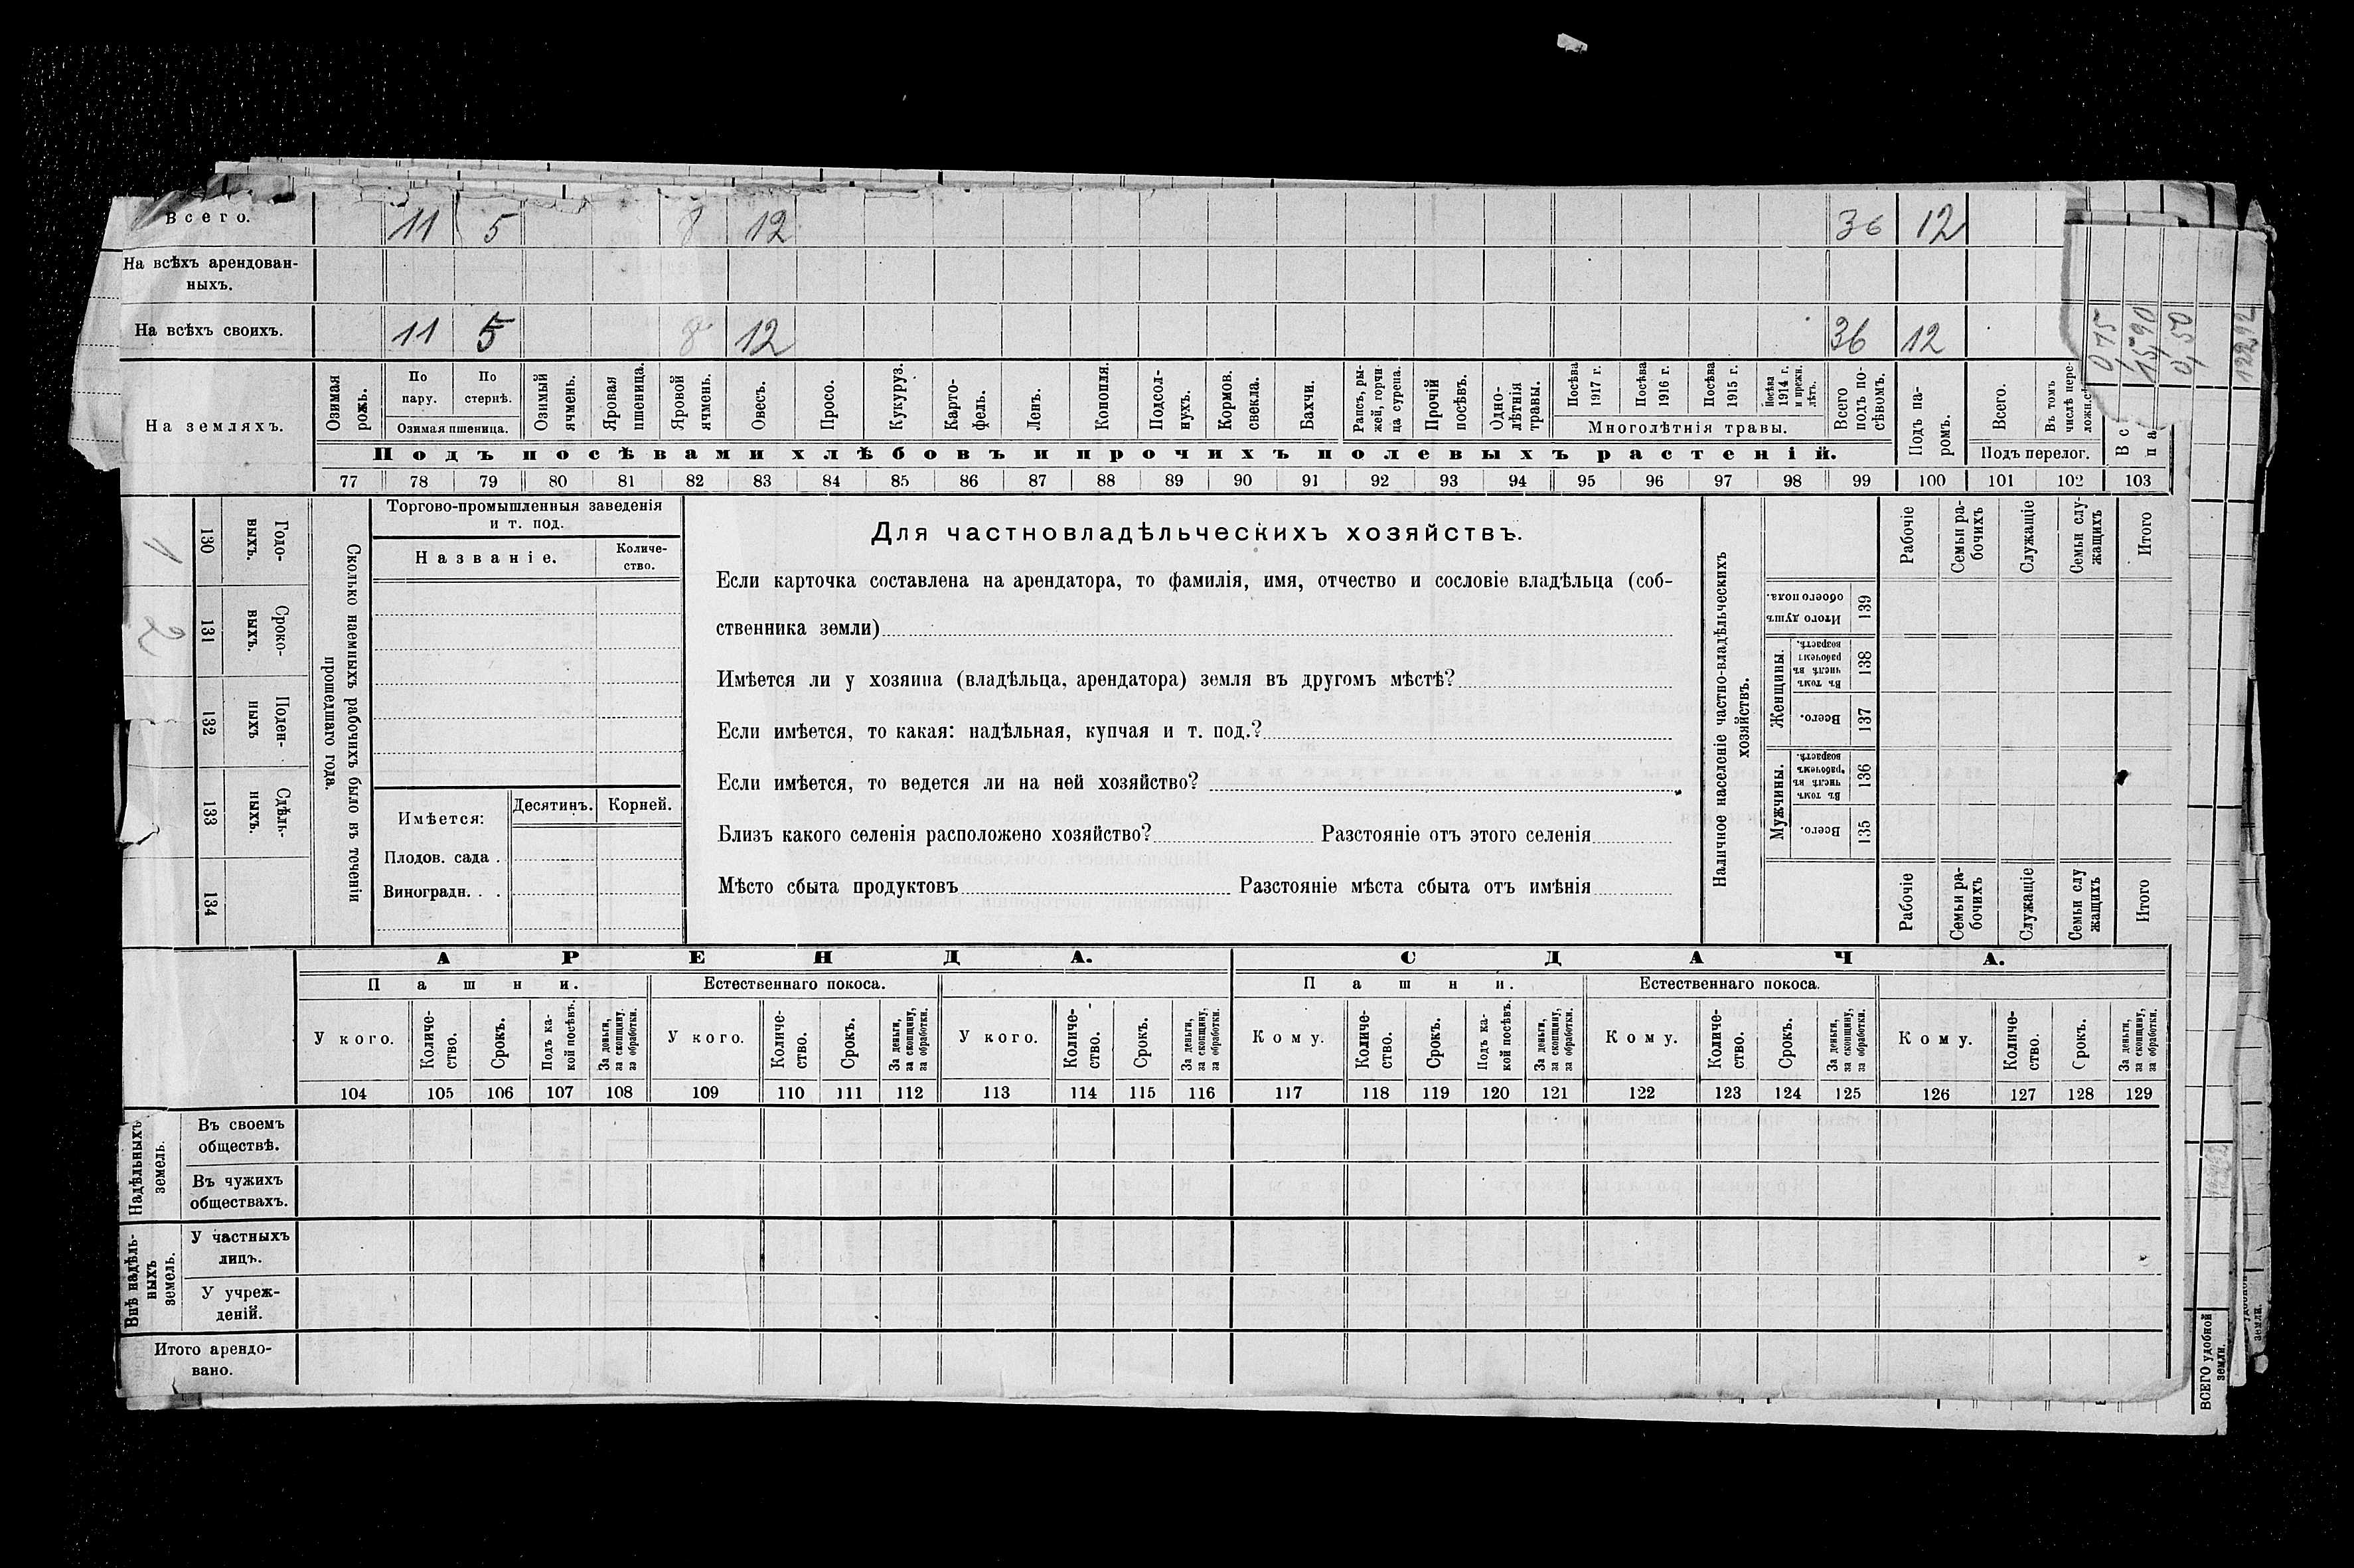 Всего. 11 5 8 12 36 12
На всѣхъ арендован-
ныхъ.
На всѣхъ своихъ. 11 5 8 12 36 12
0,75
15,90
0,50
122,92
На земляхъ.
Озимая рожь.
По пару.
По стернѣ.
Озимая пшеница.
Озимый ячмень.
Яровая пшеница.
Яровой ячмень.
Овесъ.
Просо.
Кукуруз.
Карто-
фель.
Ленъ.
Конопля.
Подсол-
нухъ.
Кормов. свекла.
Бахчи.
Рапсъ, ры-
жей, горчи-
ца сурепа.
Прочій посѣвъ.
Одно-
лѣтнія травы.
Посѣва 1917 г.
Посѣва 1916 г.
Посѣва 1915 г.
Посѣва 1914 г. и прежн. лѣтъ.
Многолѣтнія травы.
Всего подъ по-
сѣвомъ.
Подъ па-
ромъ.
Всего.
Въ томъ числѣ пере-
Подъ перелог.
Подъ посѣвами хлѣбовъ и прочихъ полевыхъ растеній.
77 78 79 80 81 82 83 84 85 86 87 88 89 90 91 92 93 94 95 96 97 98 99 100 101 102 103
1
2
130 131 132 133 134
Годо-
выхъ.
Сроко-
выхъ.
Поден-
ныхъ
Сдѣль-
ныхъ.
Сколько наемныхъ рабочихъ было въ теченіи
прошедшаго года.
Торгово-промышленныя заведенія
и т. под.
Названіе.
Количе-
ство.
Имѣется:
Десятинъ. Корней.
Плодов. сада .
Виноградн. . .
Для частновладѣльческихъ хозяйствъ.
Если карточка составлена на арендатора, то фамилія, имя, отчество и сословіе владѣльца (соб-
ственника земли)
Имѣется ли у хозяина (владѣльца, арендатора) земля въ другомъ мѣстѣ?
Если имѣется, то какая: надѣльная, купчая и т. под.?
Если имѣется, то ведется ли на ней хозяйство?
Близъ какого селенія расположено хозяйство? Разстояніе отъ этого селенія
Мѣсто сбыта продуктовъ Разстояніе мѣста сбыта отъ имѣнія
Наличное населеніе частно-владѣльческихъ
хозяйствъ.
Рабочіе
Семьи ра-
бочихъ
Служащіе
Семьи слу-
жащихъ
Итого
Итого душъ обоего пола. 139
Женщины.
Въ томъ числѣ въ рабочемъ возрастѣ. 138
Всего. 137
Мужчины.
Въ томъ числѣ въ рабочемъ возрастѣ. 136
Всего. 135
Рабочіе
Семьи ра-
бочихъ
Служащіе
Семьи слу
жащихъ
Итого
АРЕНДА. СДАЧА.
Пашни. Естественнаго покоса. Пашни. Естественнаго покоса.
У кого.
Количе-
ство.
Срокъ.
Подъ ка-
кой посѣвъ.
За деньги, за скопщину, за обработки.
У кого.
Количе-
ство.
Срокъ.
За деньги, за скопщину, за обработки.
У кого.
Количе-
ство.
Срокъ.
За деньги, за скопщину, за обработки.
Кому.
Количе-
ство.
Срокъ.
Подъ ка-
кой посѣвъ.
За деньги, за скопщину, за обработки.
Кому.
Количе-
ство.
Срокъ.
За деньги, за скопщину, за обработки.
Кому.
Количе-
ство.
Срокъ.
За деньги, за скопщину, за обработки.
104 105 106 107 108 109 110 111 112 113 114 115 116 117 118 119 120 121 122 123 124 125 126 127 128 129
Надѣльныхъ
земель.
Въ своемъ
обществѣ.
Въ чужихъ
обществахъ.
Внѣ надѣль-
ныхъ
земель.
У частныхъ
лицъ.
У учреж-
деній.
Итого арендо-
вано.
ВСЕГО удобной
земли.